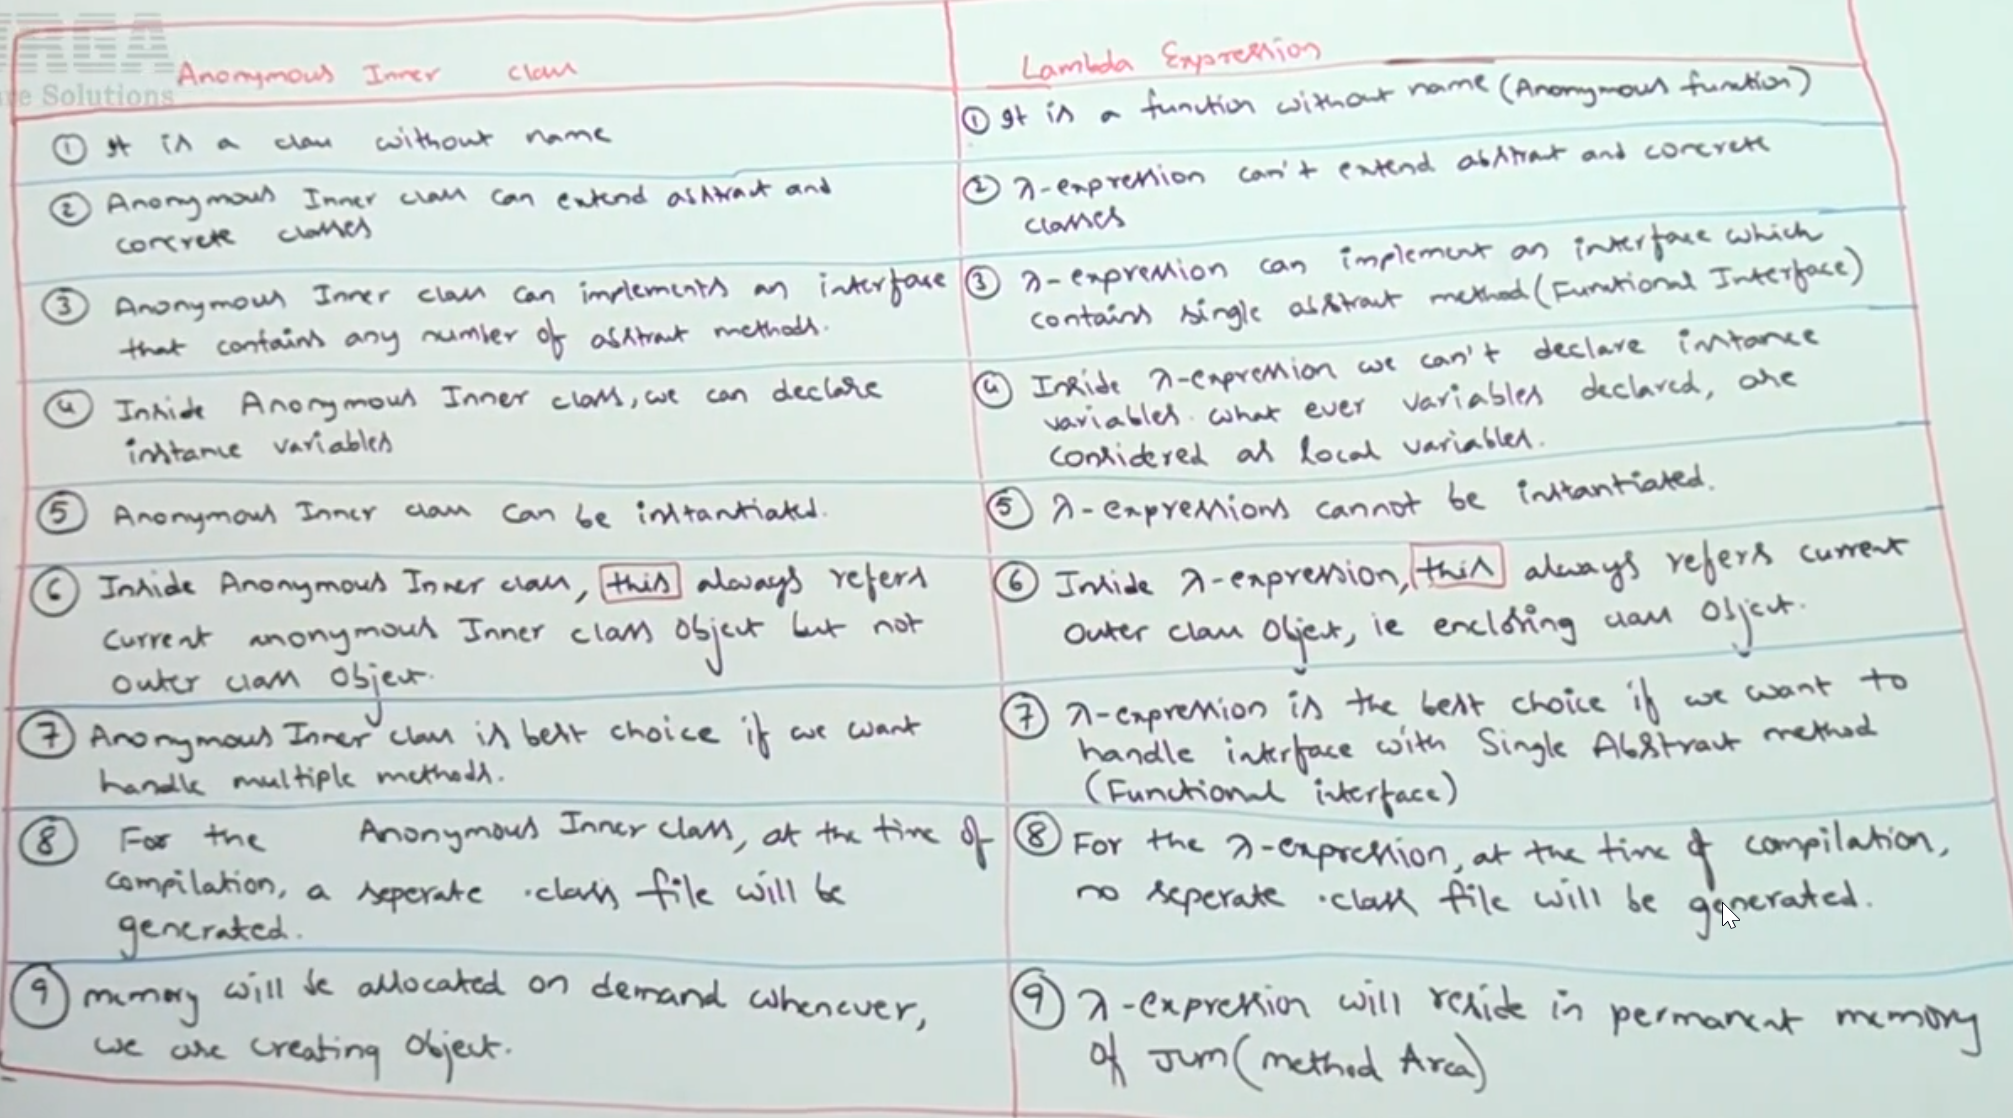 URGA
re Solutions
Anonymous Inner class
Lambda Expression
① It is a class without name
① It is a function without name (Anonymous function)
② Anonymous Inner class can extend abstract and
concrete classes
② λ-expression can't extend abstract and concrete
classes
③ Anonymous Inner class can implements an interface
that contains any number of abstract methods.
③ λ-expression can implement an interface which
contains single abstract method (Functional Interface)
④ Inside Anonymous Inner class, we can declare
instance variables
④ Inside λ-expression we can't declare instance
variables. what ever variables declared, are
considered as local variables.
⑤ Anonymous Inner class can be instantiated.
⑤ λ-expressions cannot be instantiated.
⑥ Inside Anonymous Inner class, this always refers
current anonymous Inner class object but not
outer class object.
⑥ Inside λ-expression, this always refers current
outer class object, ie enclosing class object.
⑦ Anonymous Inner class is best choice if we want
handle multiple methods.
⑦ λ-expression is the best choice if we want to
handle interface with Single Abstract method
(Functional interface)
⑧ For the Anonymous Inner class, at the time of
compilation, a seperate .class file will be
generated.
⑧ For the λ-expression, at the time of compilation,
no seperate .class file will be generated.
⑨ memory will be allocated on demand whenever,
we are creating object.
⑨ λ-expression will reside in permanent memory
of JVM (method Area)